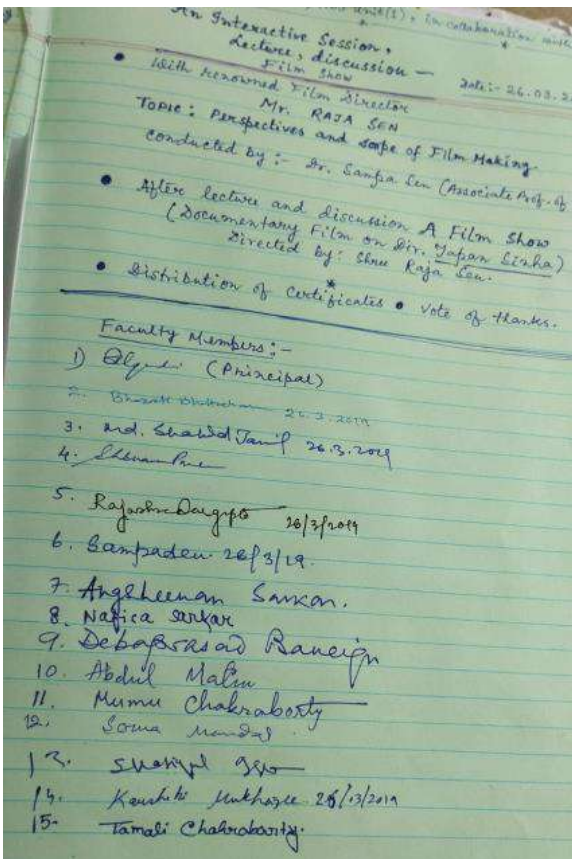 unit(1), in collaboration with
An Interactive Session,
Lecture, discussion —
Film Show
Date:- 26.03.2
• With renowned Film Director
Mr. RAJA SEN
TOPIC: Perspectives and scope of Film Making
conducted by :- Dr. Sampa Sen (Associate Prof. of
• After lecture and discussion A Film Show
(Documentary Film on Dir. Tapan Sinha)
Directed by: Shree Raja Sen.
• Distribution of Certificates • Vote of thanks.
Faculty Members :-
1) (Principal)
2. 26.3.2019
3. Md. Shahid Jamil 26.3.2019
4.
5. Rajashree Dasgupta 26/3/2019
6. Sampa Sen 26/3/19.
7. Angsheeman Sarkar.
8. Nafica Sarkar
9. Debaprasad Banerjee
10. Abdul
11. Mumu Chakraborty
12. Soma Mandal
13.
14. Kausheki Mukherjee 26/03/2019
15- Tamali Chakraborty.